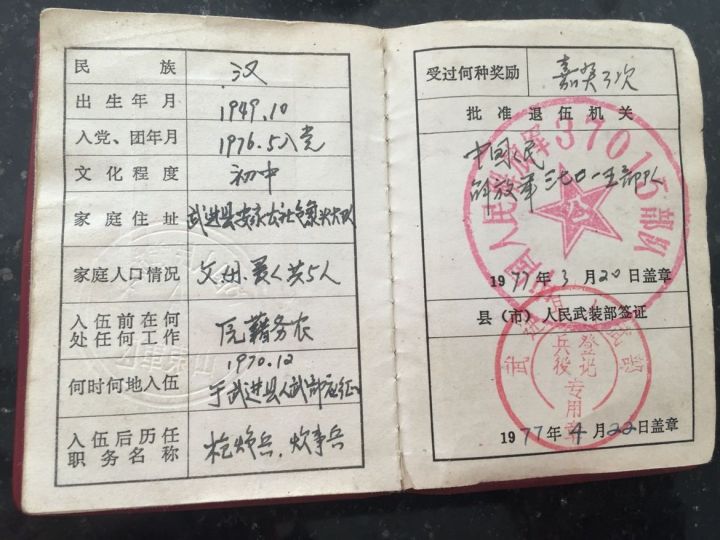 民族 汉
出生年月 1949.10
入党、团年月 1976.5入党
文化程度 初中
家庭住址 武进县安家公社
家庭人口情况 共5人
入伍前在何
处任何工作 务农
何时何地入伍 1970.12
于武进县人武部应征
入伍后历任
职务名称 枪炮兵.炊事兵
受过何种奖励 嘉奖3次
批准退伍机关
中国人民
解放军三七〇一五部队
中国人民解放军37015部队
1977年3月20日盖章
县（市）人民武装部签证
武进县人民武装部
兵役登记专用章
1977年4月22日盖章